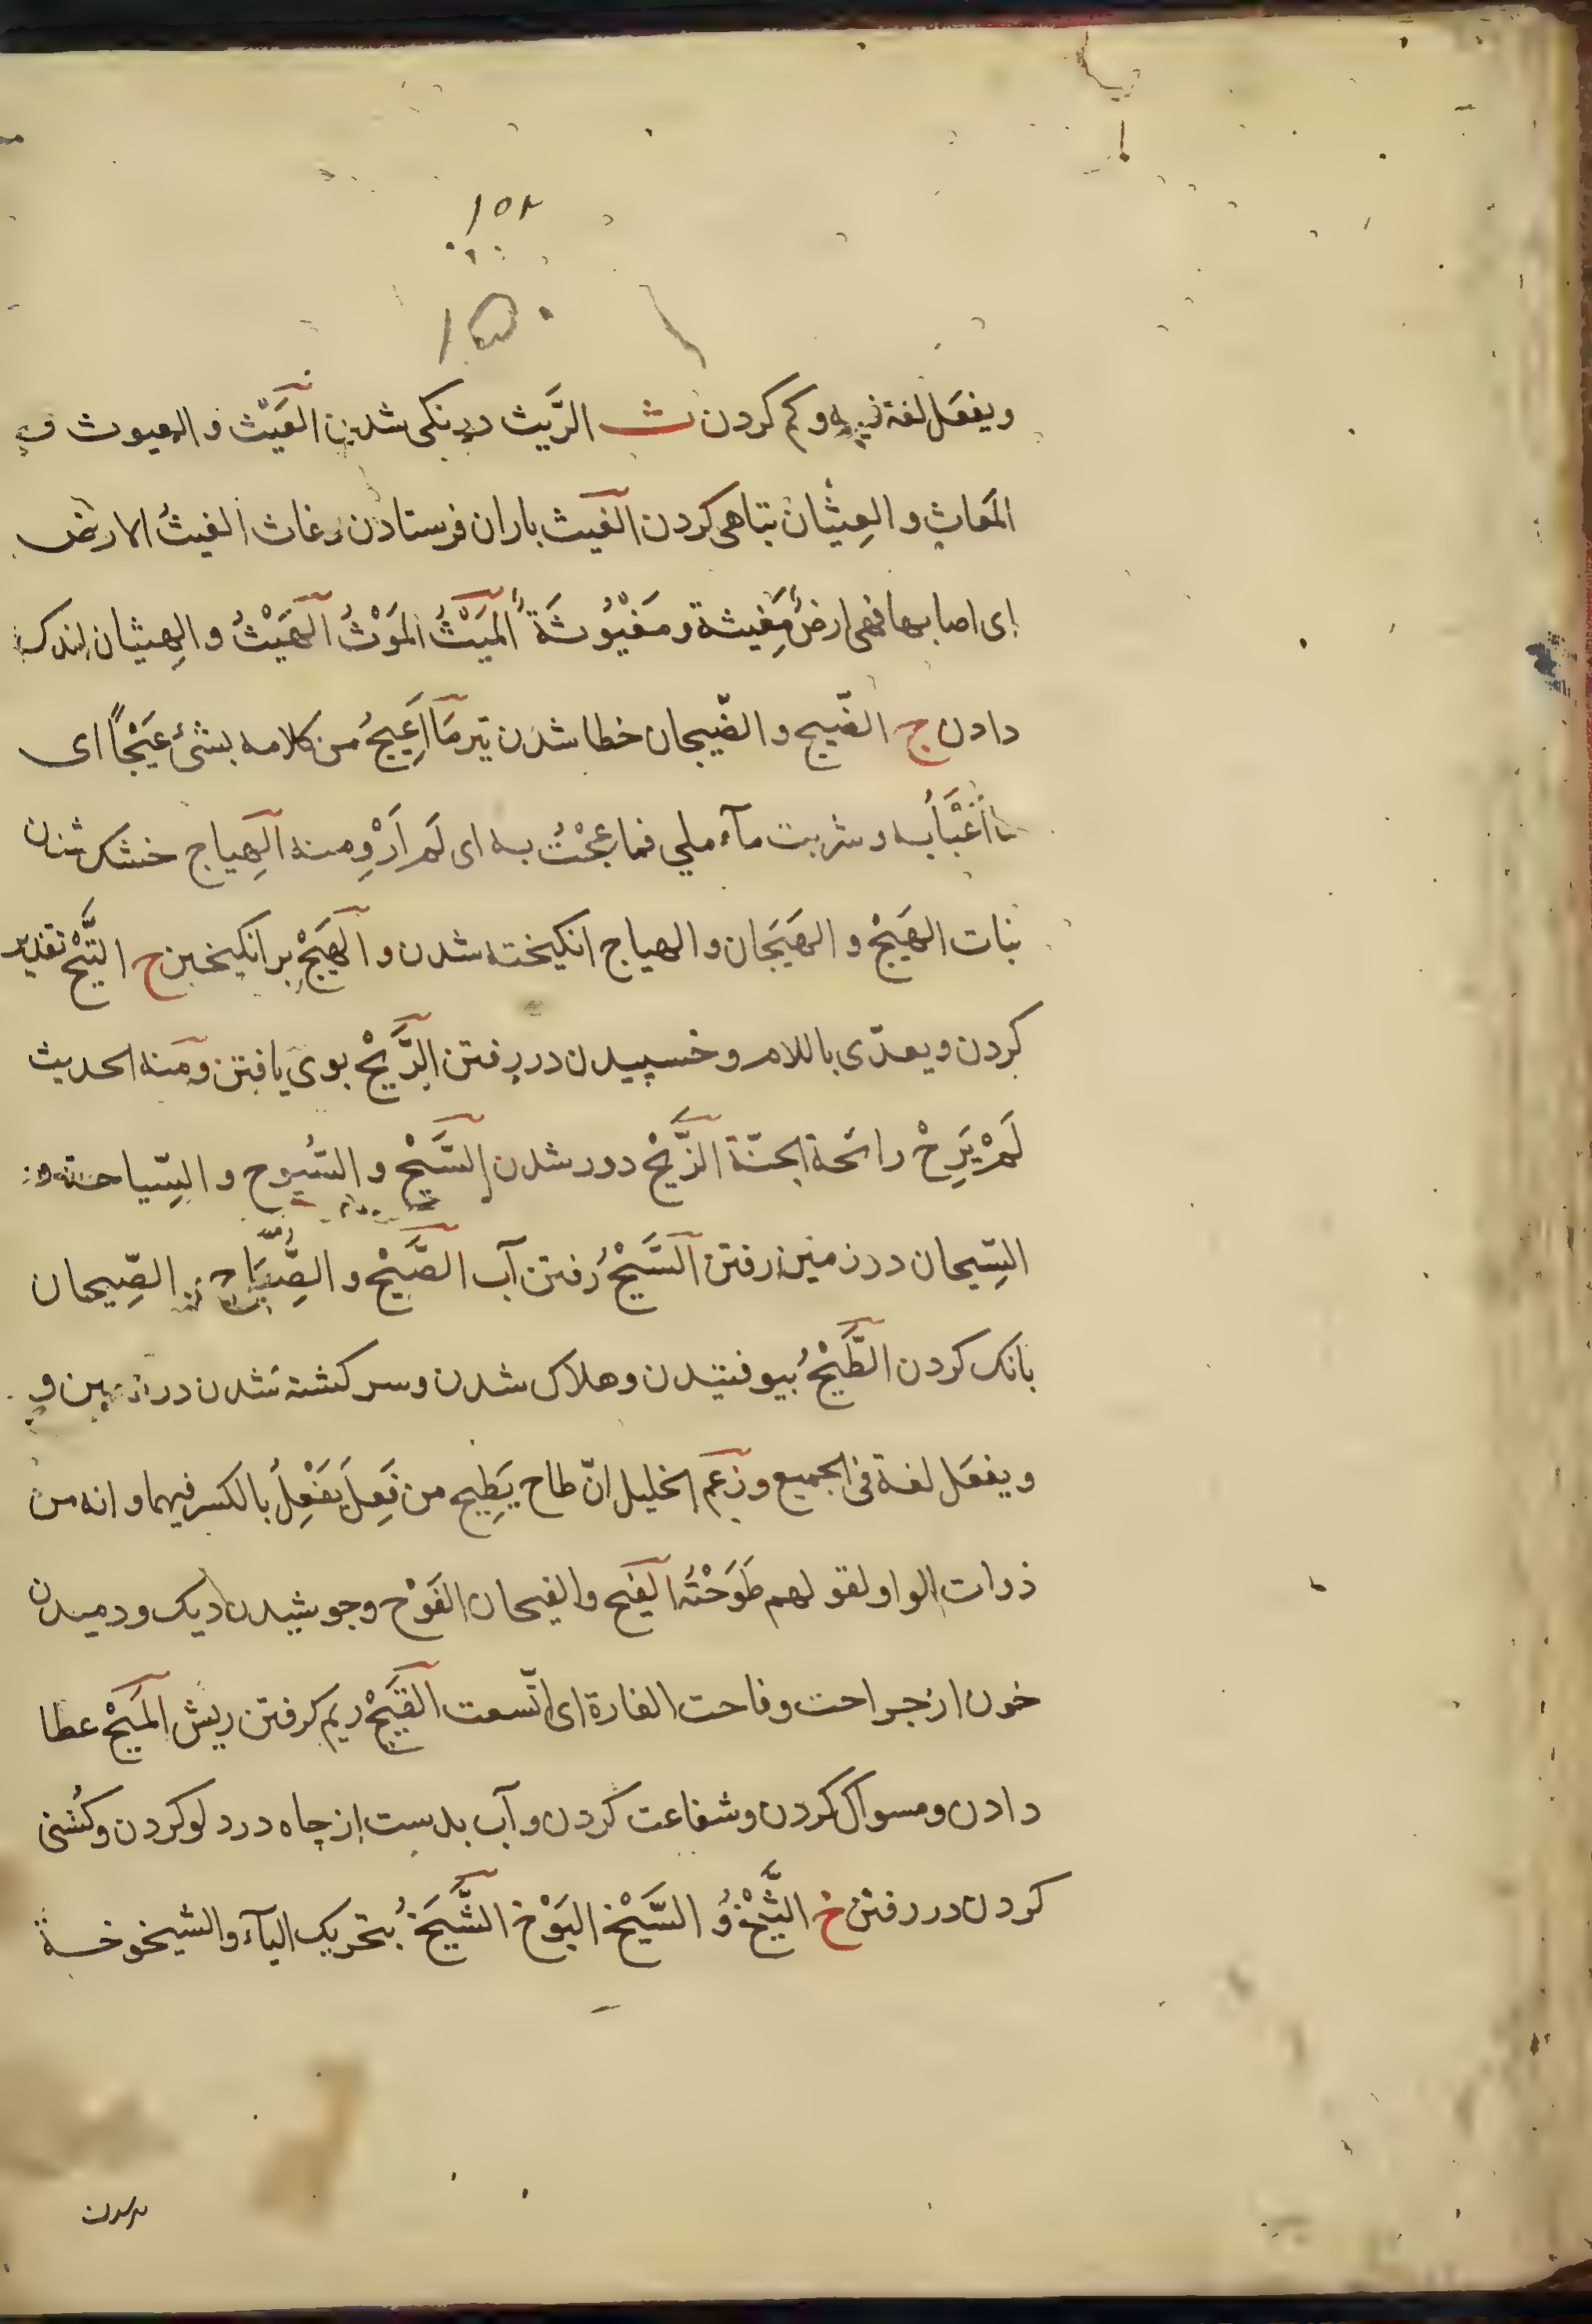 ١٥٢
١٥٠
ويفعَل لغة فيه وكم كردن ث الرَّيث درنكى شدن العَيْث و العيوث و
المَعاث و العِيثان تباهى كردن الغَيث باران فرستادن وغاث الغيثُ الارض
اى اصابها فهى ارضٌ مَغِيثة و مَغْيُوثَةٌ المَيْثُ المَوْثُ الهَيْثُ و الهِيثان اندك
دادن ج الضّيج و الضّيجان خطا شدن تير مَا اَعِيجُ من كلامه بشئ عَيْجًا اى
ما اَعْبَأُ به و شربت مآء ملح فما عِجْتُ به اى لَم اَرْوِ منه الهِياج خشك شدن
نبات الهَيْج و الهَيَجان و الهياج انكيخته شدن و الهَيْج بر انكيختن ح التَّيْح تقدير
كردن و يعدّى باللام و خسپيدن در رفتن الرَّيْح بوى يافتن ومنه الحديث
لَمْ يَرِحْ رائحة الجنّة الزَّيْح دور شدن السَّيْح و السُيوح و السِّياحة و
السِّيحان در زمين رفتن السَّيْحُ رفتن آب الصَّيْح و الصِّيَاح و الصِّيحان
بانك كردن الطَّيْحُ بيوفتيدن و هلاك شدن و سر كشته شدن در زمين و
ويفعَل لغة فى الجميع و زعم الخليل انّ طاح يَطِيح من فَعِلَ يَفْعِلُ بالكسر فيهما و انه من
ذوات الواو لقولهم طَوَحْتُه الفيح و الفيحان الفَوْح و جوشيدن ديك و دميدن
خون از جراحت و فاحت الغارة اى اتّسعت القَيْح ريم كرفتن ريش المَيْح عطا
دادن و مسواك كردن و شفاعت كردن و آب بدست از چاه در دلو كردن و كُشنى
كردن در رفتن خ الثَّيْخُ و السَّيْخ الثَوْخ الشَّيَخُ بتحريك اليآء و الشيخوخة